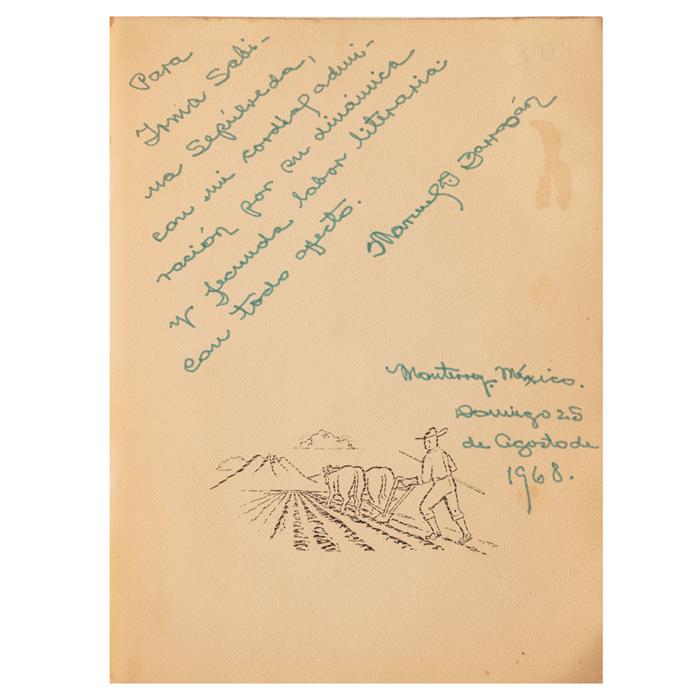 Para
Irma Sabi-
na Sepúlveda,
con mi cordial admi-
ración por su dinámica
y fecunda labor literaria
con todo afecto.
Manuel D Barragán
Monterrey. México.
Domingo 25
de Agosto de
1968.
300